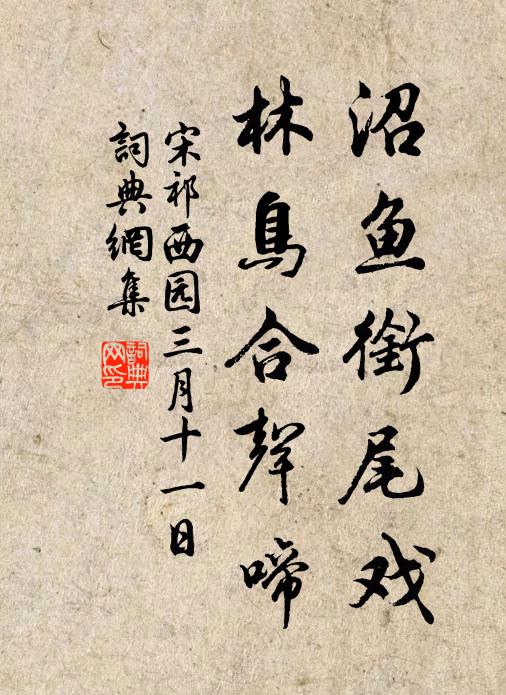 沼鱼銜尾戏
林鳥合聲啼
宋祁西园三月十一日
詞典網集
詞典网印